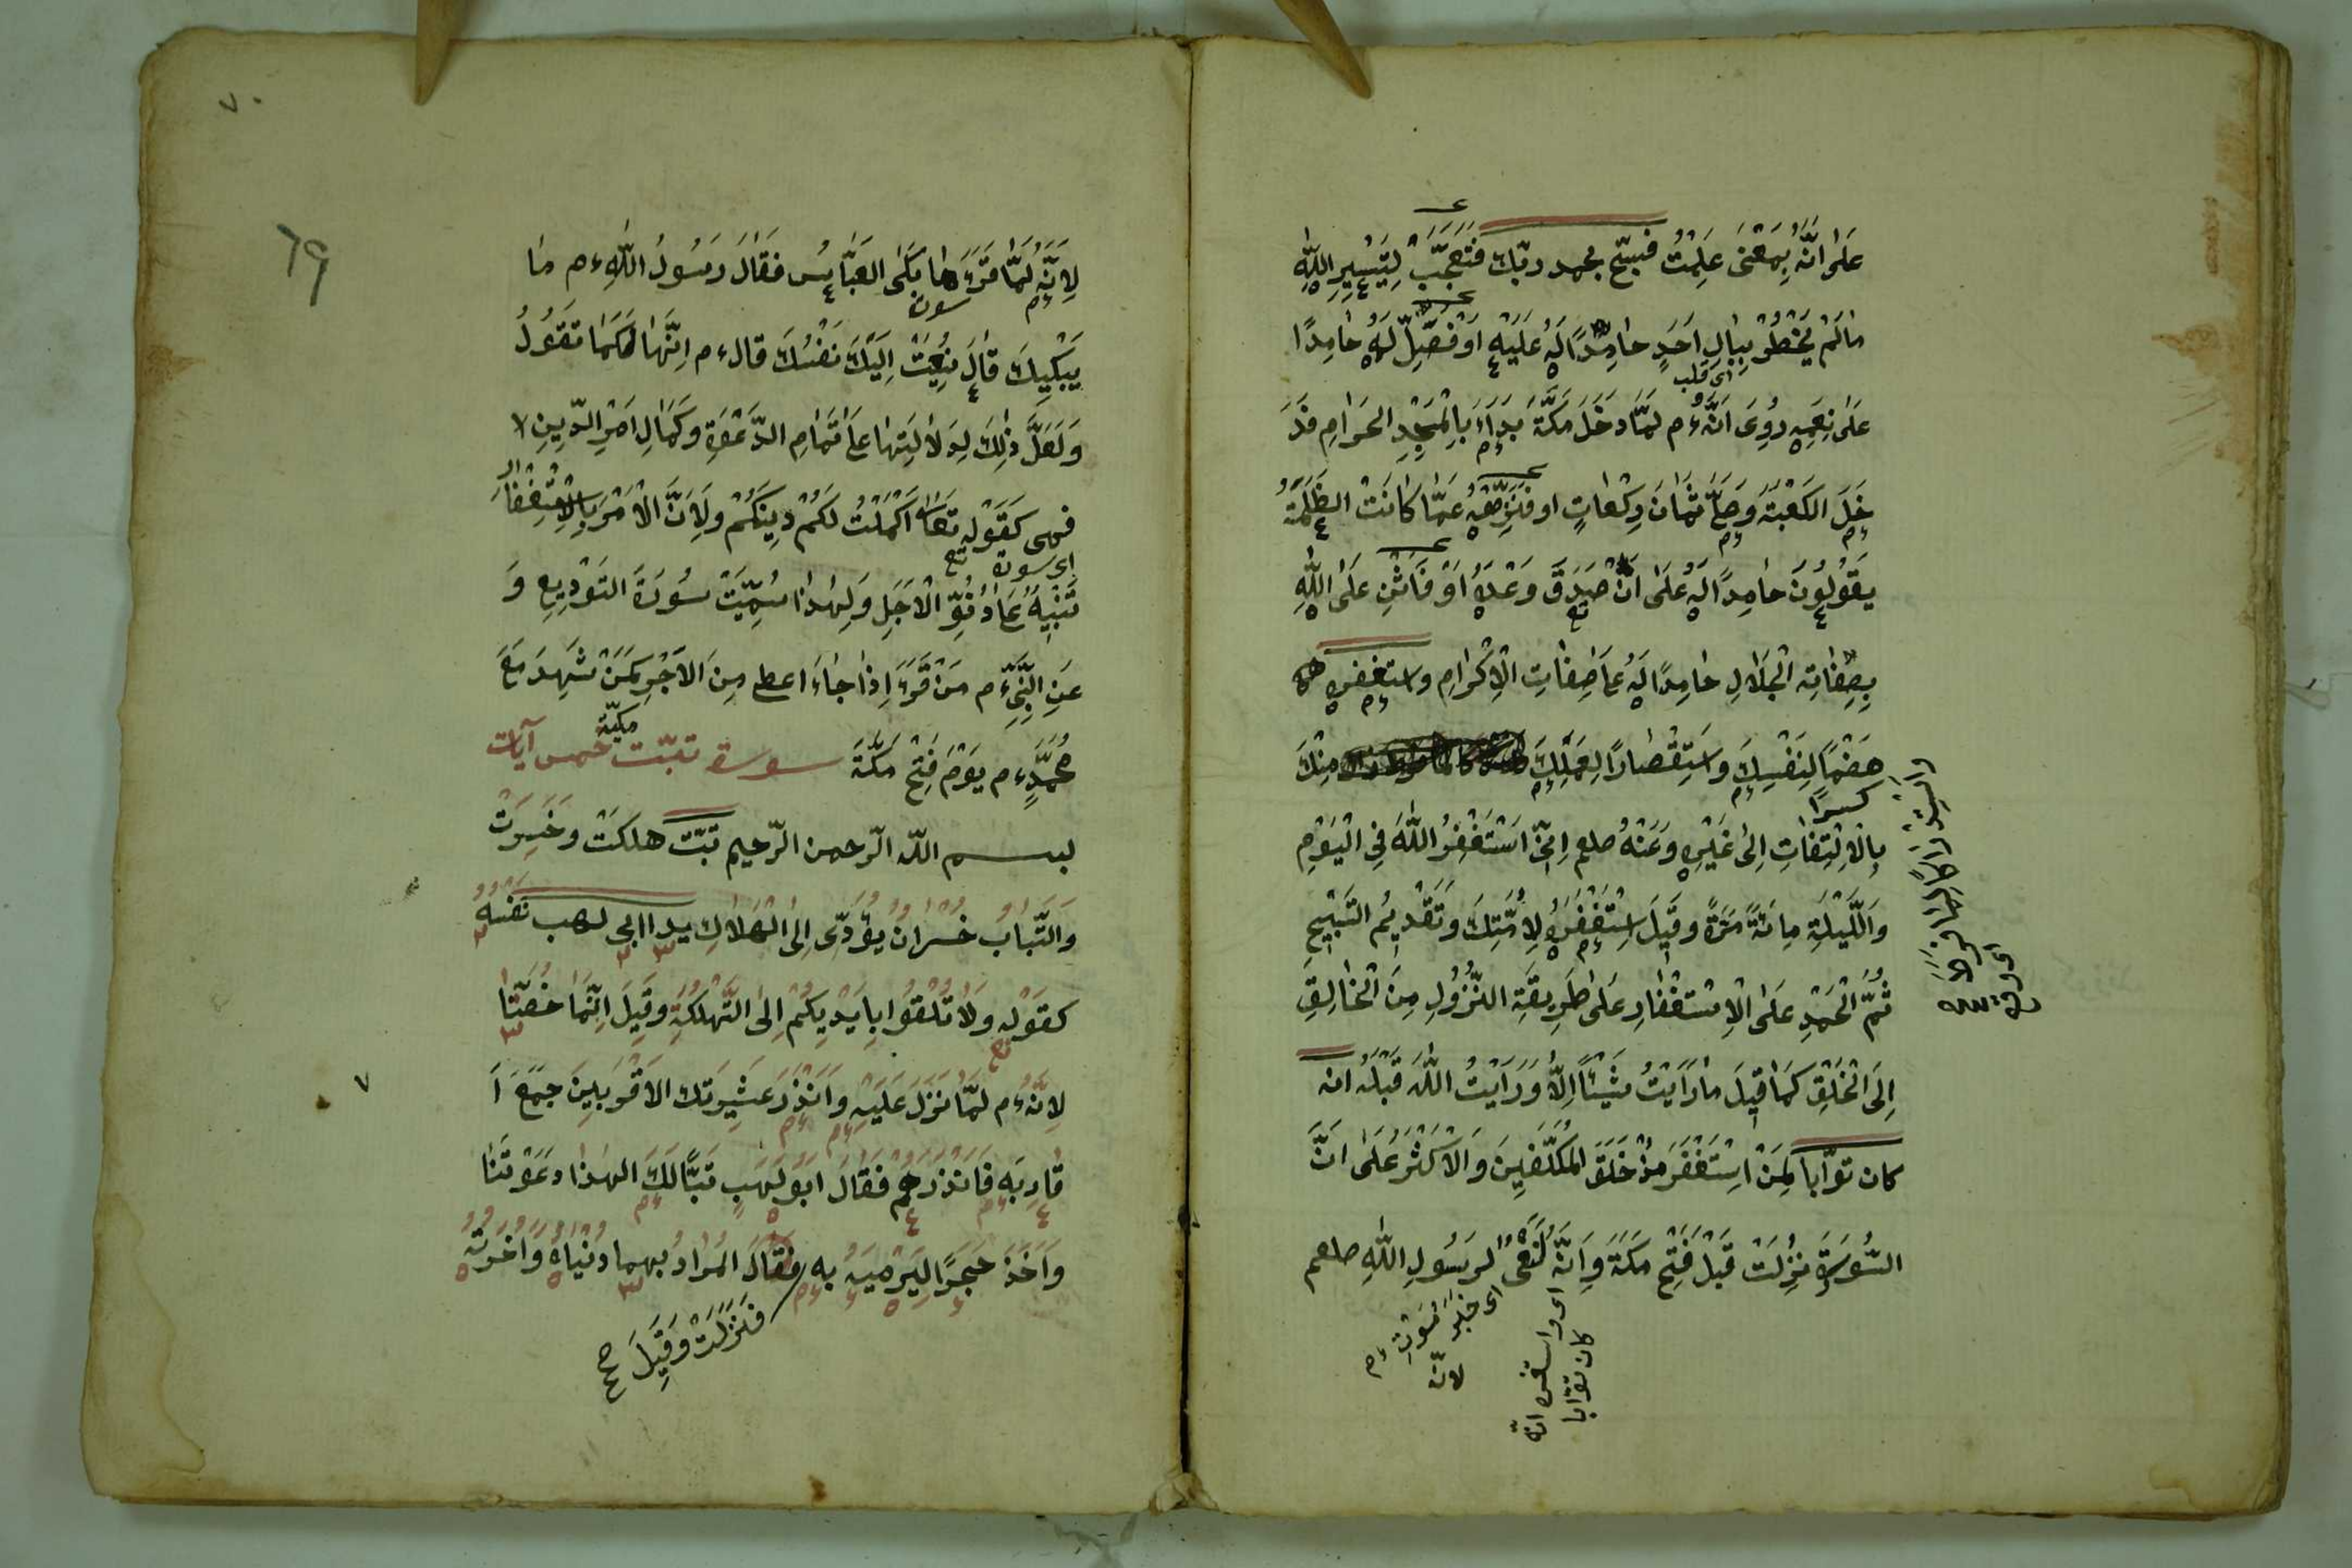 عَلَى اَنَّهُ بِمَعْنَى عَلِمْتَ فسبّح بحمد ربّك فَتَعَجَّبْ لِتَيْسِيرِ اللّٰهِ
مَا لَمْ يَخْطُرْ بِبَالِ اَحَدٍ حَامِدًا لَهُ عَلَيْهِ اَوْ فَصَلِّ لَهُ حَامِدًا
اى قلب
عَلَى نِعَمِهِ رُوِىَ اَنَّهُ ءم لَمَّا دَخَلَ مَكَّةَ بَدَاَءَ بِالْمَسْجِدِ الحَرَامِ فَدَ
خَلَ الكَعْبَةَ وَصَلَّى ثَمَانَ رَكَعَاتٍ او فَنَزِّهْهُ عَمَّا كَانَتْ الظَّلَمَةُ
يَقُولُونَ حَامِدًا لَهُ عَلَى اَنْ صَدَقَ وَعْدَهُ اَوْ فَاَثْنِ عَلَى اللّٰهِ
بِصِفَاتِ الْجَلَالِ حَامِدًا لَهُ عَلَى صِفَاتِ الْاِكْرَامِ واستغفره
هَضْمًا لِنَفْسِكَ وَاسْتِقْصَارًا لِعَمَلِكَ مِنْكَ
بِالْاِلْتِفَاتِ اِلَى غَيْرِهِ وَعَنْهُ صلعم اِنِّى اَسْتَغْفِرُ اللّٰهَ فِى الْيَوْمِ
وَاللَّيْلَةِ مِائَةَ مَرَّةٍ وَقِيلَ اِسْتَغْفِرْهُ لِاُمَّتِكَ وَتَقْدِيمُ التَسْبِيحِ
ثُمَّ الْحَمْدِ عَلَى الْاِسْتِغْفَارِ عَلَى طَرِيقَةِ النُّزُولِ مِنَ الْخَالِقِ
اِلَى الْخَلْقِ كَمَا قِيلَ مَا رَاَيْتُ شَيْئًا اِلَّا وَرَاَيْتُ اللّٰهَ قَبْلَهُ انه
كان توّابا لِمَنْ اسْتَغْفَرَ مُذْ خَلَقَ المُكَلَّفِينَ وَالْاَكْثَرُ عَلَى اَنَّ
السُّورَةَ نُزِلَتْ قَبْلَ فَتْحِ مَكَّةَ وَاَنَّهُ نَعْىٌ لِرَسُولِ اللّٰهِ صلعم
اى واستغفره انّه
كان توّابا
لانّه
لِاَنَّهُ لَمَّا قَرَءَهَا بَكَى العَبَّاسُ فَقَالَ رَسُولُ اللّٰهِ ءم مَا
يُبْكِيكَ قَالَ نُعِيَتْ اِلَيْكَ نَفْسُكَ قال ءم اِنَّهَا لَكَمَا تَقُولُ
وَلَعَلَّ ذٰلِكَ لِدَلَالَتِهَا عَلَى تَمَامِ الدَّعْوَةِ وَكَمَالِ اَمْرِ الدِّينِ
فهى كَقَوْلِهِ تعا اَكْمَلْتُ لَكُمْ دِينَكُمْ وَلِاَنَّ الْاَمْرَ بِالْاِسْتِغْفَارِ
اى سورة
تَنْبِيهٌ عَلَى دُنُوِّ الْاَجَلِ وَلِهٰذَا سُمِّيَتْ سُورَةَ التَوْدِيعِ وَ
عَنِ النَّبِىِّ ءم مَنْ قَرَءَ اِذَا جَاءَ اعطى مِنَ الْاَجْرِ كَمَنْ شَهِدَ مَعَ
مُحَمَّدٍ ءم يَوْمَ فَتْحِ مَكَّةَ سورة تبّت مكيّة خمس آيات
بسم اللّٰه الرّحمن الرّحيم تبّت هلكَتْ وَخَسِرَتْ
وَالتَّبَابُ خُسْرَانٌ يُؤَدِّى اِلَى الْهَلَاكِ يدا ابى لهب نَفْسُهُ
كقَوْلِهِ وَلَا تُلْقُوا بِاَيْدِيكُمْ اِلَى التَّهْلُكَةِ وَقِيلَ اِنَّمَا خُصَّتَا
لِاَنَّهُ ءم لَمَّا نَزَلَ عَلَيْهِ وَاَنْذِرْ عَشِيرَتَكَ الْاَقْرَبِينَ جَمَعَ اَ
قَارِبَه فَاَنْذَرَهُمْ فَقَالَ اَبُو لَهَبٍ تَبًّا لَكَ الهٰذَا دَعَوْتَنَا
وَاَخَذَ حَجَرًا لِيَرْمِيَهُ بِهِ فَقَالَ المُرَادُ بهما دُنْيَاهُ وَاُخْرَتُهُ
فَنَزَلَتْ وَقِيلَ صح
٧٠
69